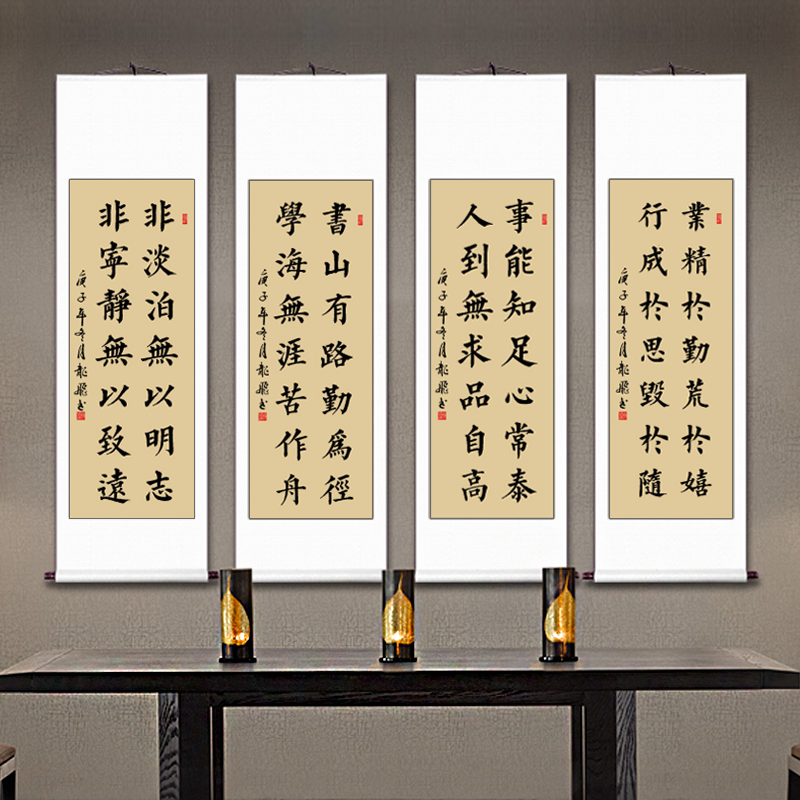 業精於勤荒於嬉
行成於思毀於隨
庚子年冬月龍飛书
事能知足心常泰
人到無求品自高
庚子年冬月龍飛书
書山有路勤爲徑
學海無涯苦作舟
庚子年冬月龍飛书
非淡泊無以明志
非寧靜無以致遠
庚子年冬月龍飛书